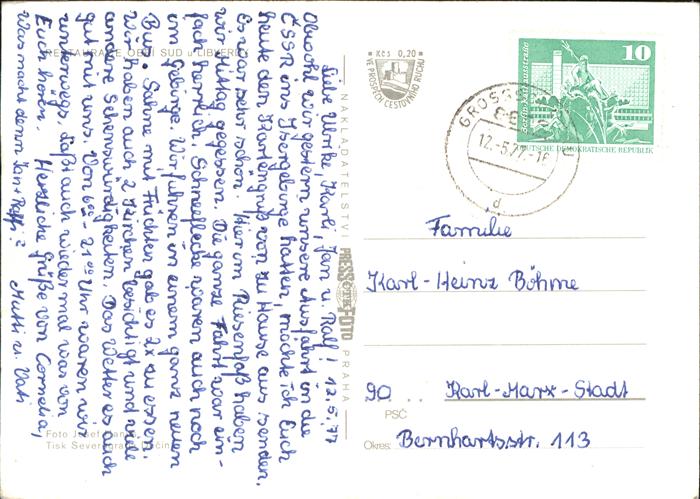 RESTAURACE OBŘÍ SUD u LIBVERDY
Liebe Ulrike, Karli, Jan u. Ralf! 12.5.77
Obwohl wir gestern unsere Ausfahrt in die
ČSSR ins Isergebirge hatten, möchte ich Euch
heute den Kartengruß von zu Hause aus senden.
Es war sehr schön. Hier im Riesenfaß haben
wir Mittag gegessen. Die ganze Fahrt war ein-
fach herrlich. Schneeflecke waren auch noch
im Gebirge. Wir fuhren in einem ganz neuen
Bus. Sahne mit Früchten gab es 2x zu essen.
Wir haben auch 2 Kirchen besichtigt und viele
andere Sehenswürdigkeiten. Das Wetter es auch
gut mit uns. Von 6°° - 21°° Uhr waren wir
unterwegs. Laßt auch wieder mal was von
Euch hören. Herzliche Grüße von Cornelia,
Was macht denn Karl Ralf? Mutti u. Vati
Foto Josef
Tisk Severografia Děčín
NAKLADATELSTVÍ PRESSFOTO PRAHA
Kčs 0,20
VE PROSPĚCH CESTOVNÍHO RUCHU
10
Berlin Rathausstraße
DEUTSCHE DEMOKRATISCHE REPUBLIK
12.-5.77.-16
d
Familie
Karl-Heinz Böhme
90 Karl-Marx-Stadt
PSČ
Okres: Bernhartsstr. 113